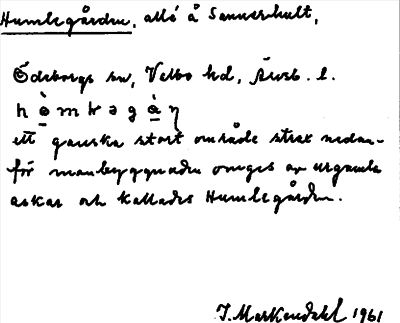 Humlegården, allé å Sannerhult,
Ödeborgs sn, Valbo hd, Älvsb. l.
hò̱mɬəgà̱ŋ
ett ganska stort område strax nedan-
för manbyggnaden omges av urgamla
askar och kallades Humlegården.
J. Markendahl 1961